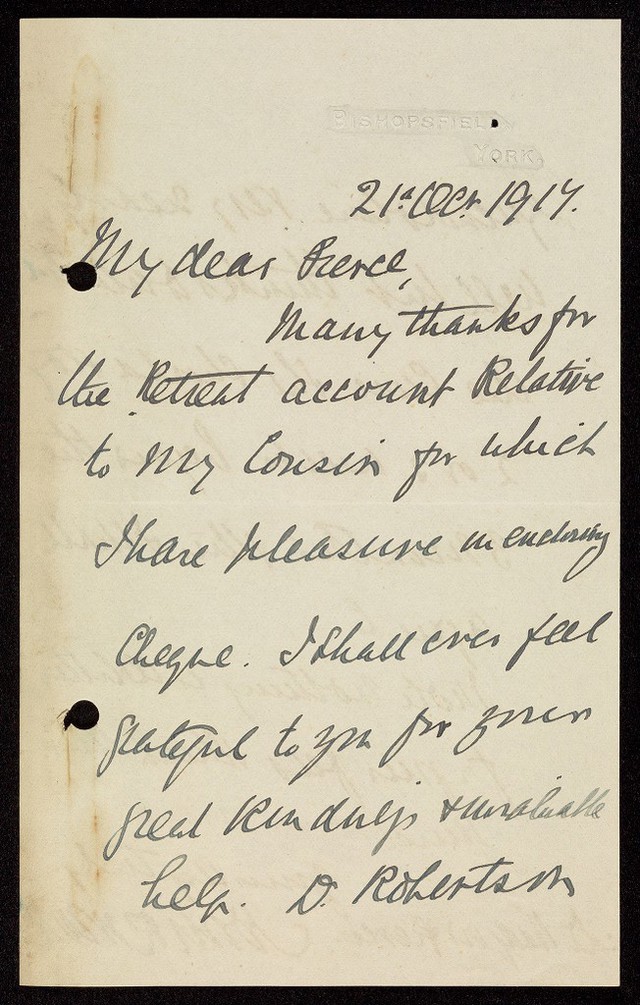 BISHOPSFIEL
YORK.
21st Oct. 1917.
My dear Pierce,
Many thanks for
the Retreat account Relative
to My Cousin for which
I have pleasure in enclosing
Cheque. I shall ever feel
grateful to you for your
great kindness & invaluable
help. D. Robertson